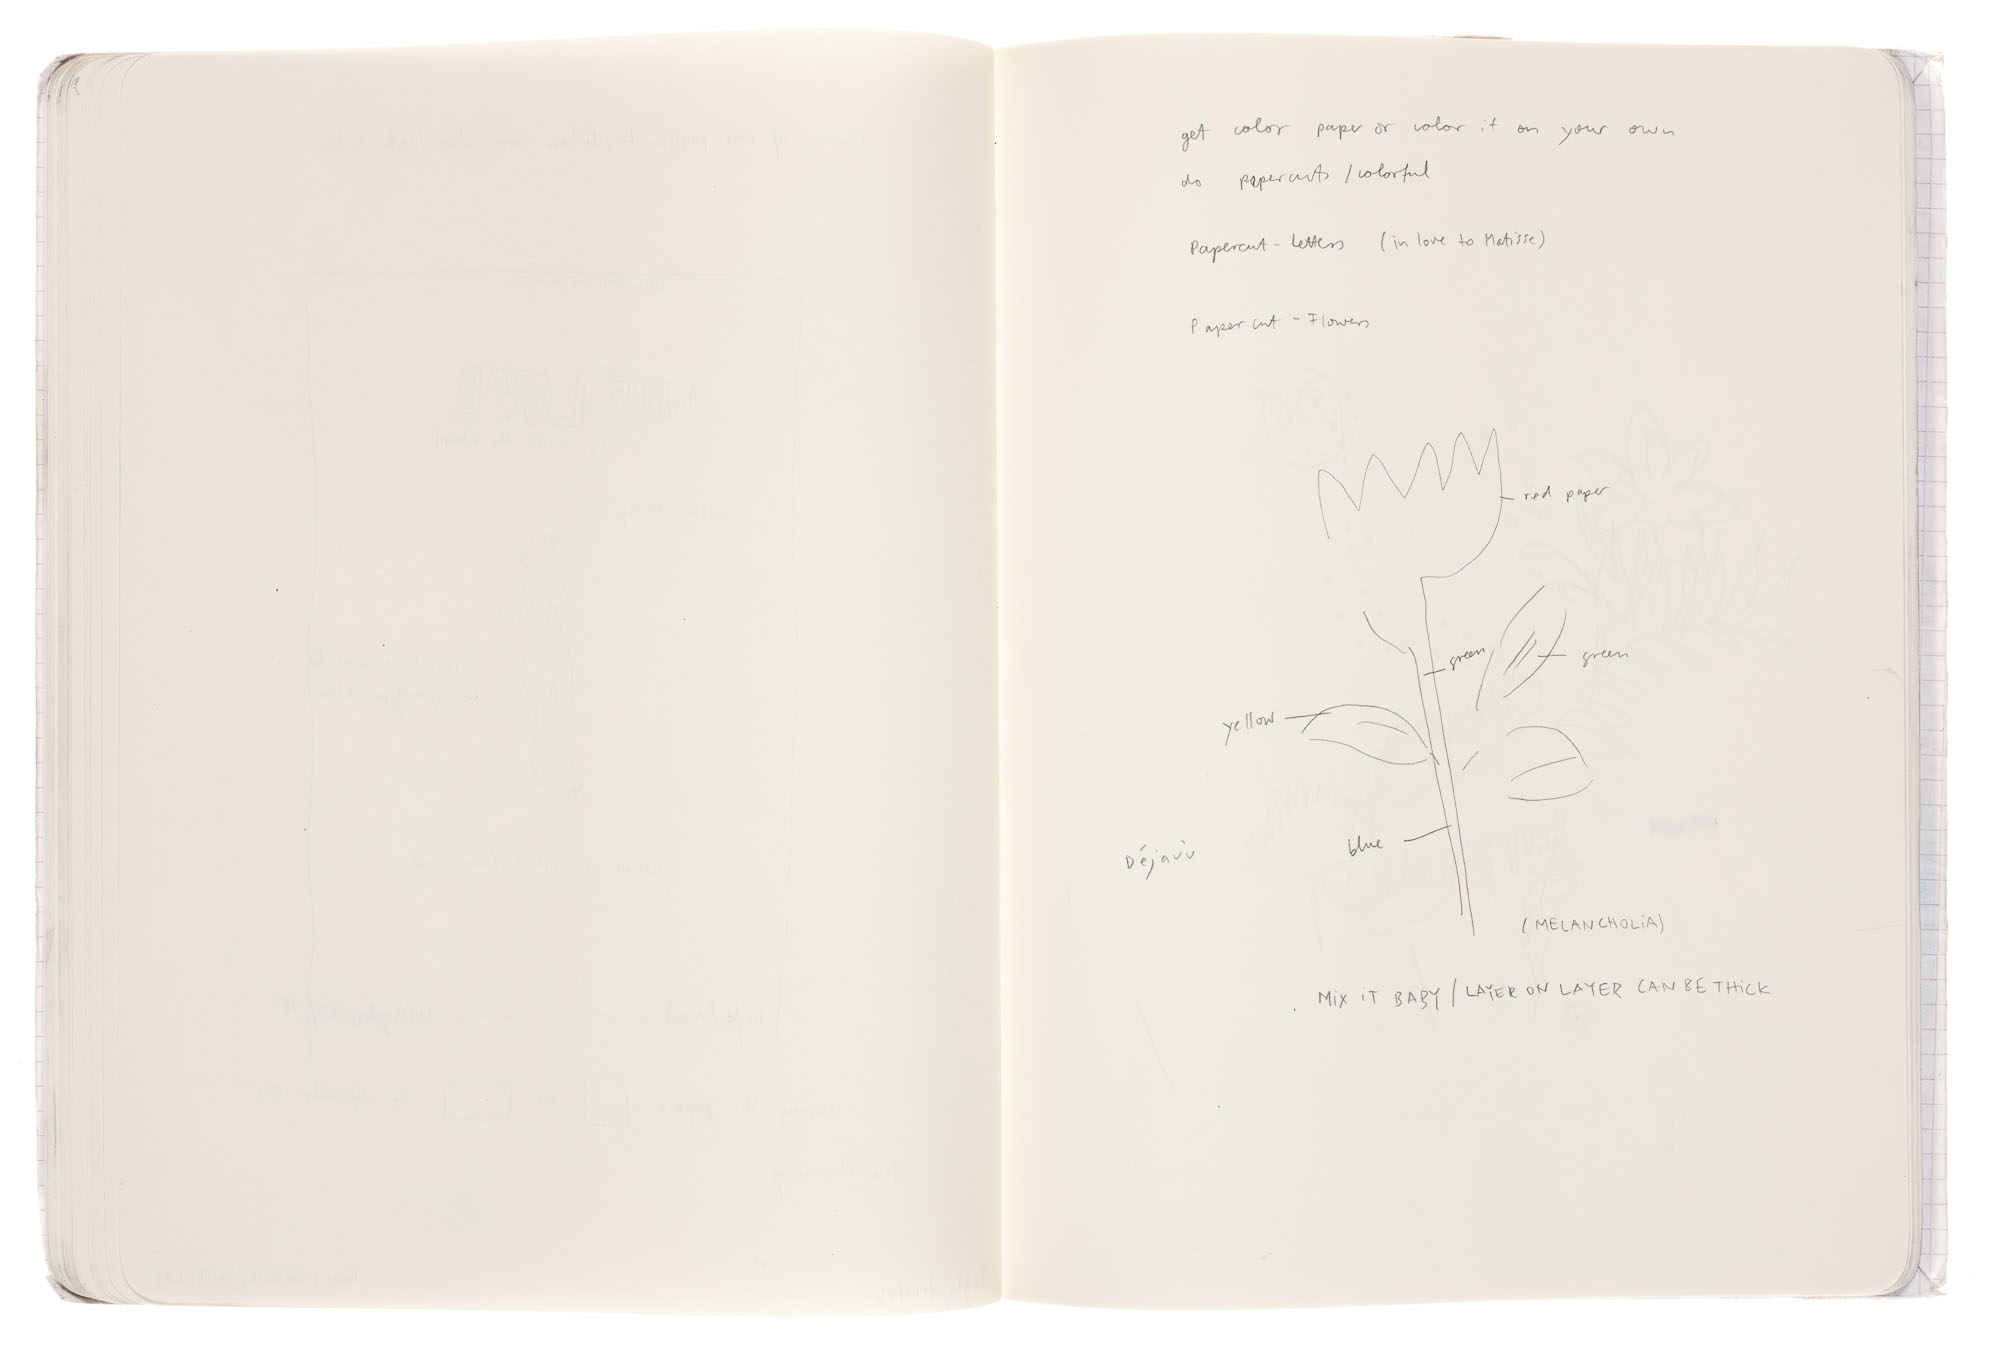 get color paper or color it on your own
do papercuts / colorful
Papercut - Letters (in love to Matisse)
Papercut - Flowers
red paper
green
green
yellow
blue
Déjàvù
(MELANCHOLiA)
MiX iT BABY / LAYER ON LAYER CAN BE THiCK